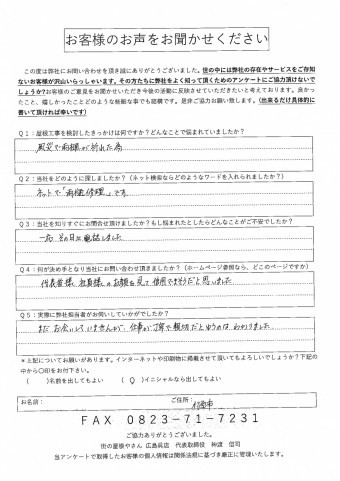 お客様のお声をお聞かせください
この度は弊社にお問い合わせを頂き誠にありがとうございました。世の中には弊社の存在やサービスをご存知
ないお客様が沢山いらっしゃいます。その方たちに弊社をよく知って頂くためのアンケートにご協力頂けないで
しょうか？お客様のご意見をお聞かせいただき今後の活動に反映させていただきたいと考えております。良かっ
たこと、嬉しかったことどのような些細な事でも結構です。是非ご協力お願い致します。（出来るだけ具体的に
書いて頂ければ幸いです）
Q1：屋根工事を検討したきっかけは何ですか？どんなことで悩まれていましたか？
風災で雨樋が折れた為
Q2：当社をどのように探しましたか？（ネット検索ならどのようなワードを入れられましたか？）
ネットで「雨樋修理」です
Q3：当社を知りすぐにお問合せ頂けましたか？もし悩まれたとしたらどんなことがご不安でしたか？
一応 その日に電話しました
Q4：何が決め手となり当社にお問い合わせ頂きましたか？（ホームページ参照なら、どこのページですか）
代表者様、社員様のお顔を見て信用できそうだと思いました
Q5：実際に弊社担当者がお伺いしていかがでしたか？
まだお会いしていませんが、仕事が丁寧で親切だというのはわかりました
＊上記についてお願いがあります。インターネットや印刷物に掲載させて頂いてもよろしいでしょうか？下記の
中から〇印をお付下さい。
（　）名前を出してもよい　（〇）イニシャルなら出してもよい
お名前：　ご住所：
FAX 0823-71-7231
ご協力ありがとうございました。
街の屋根やさん 広島呉店　代表取締役　神渡　信司
当アンケートで取得したお客様の個人情報は関係法規に基づき厳正に管理いたします。